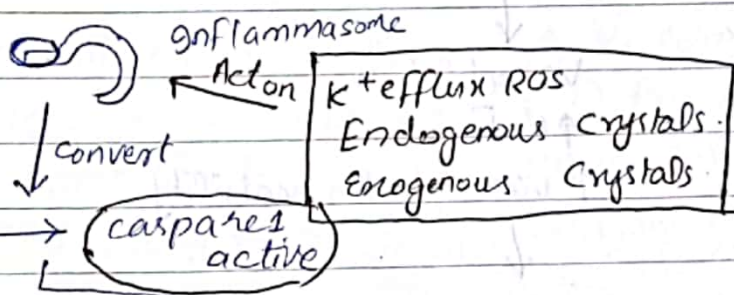 Inflammasome
Act on
K+ efflux ROS
Endogenous Crystals.
Exogenous Crystals
convert
caspase1
active